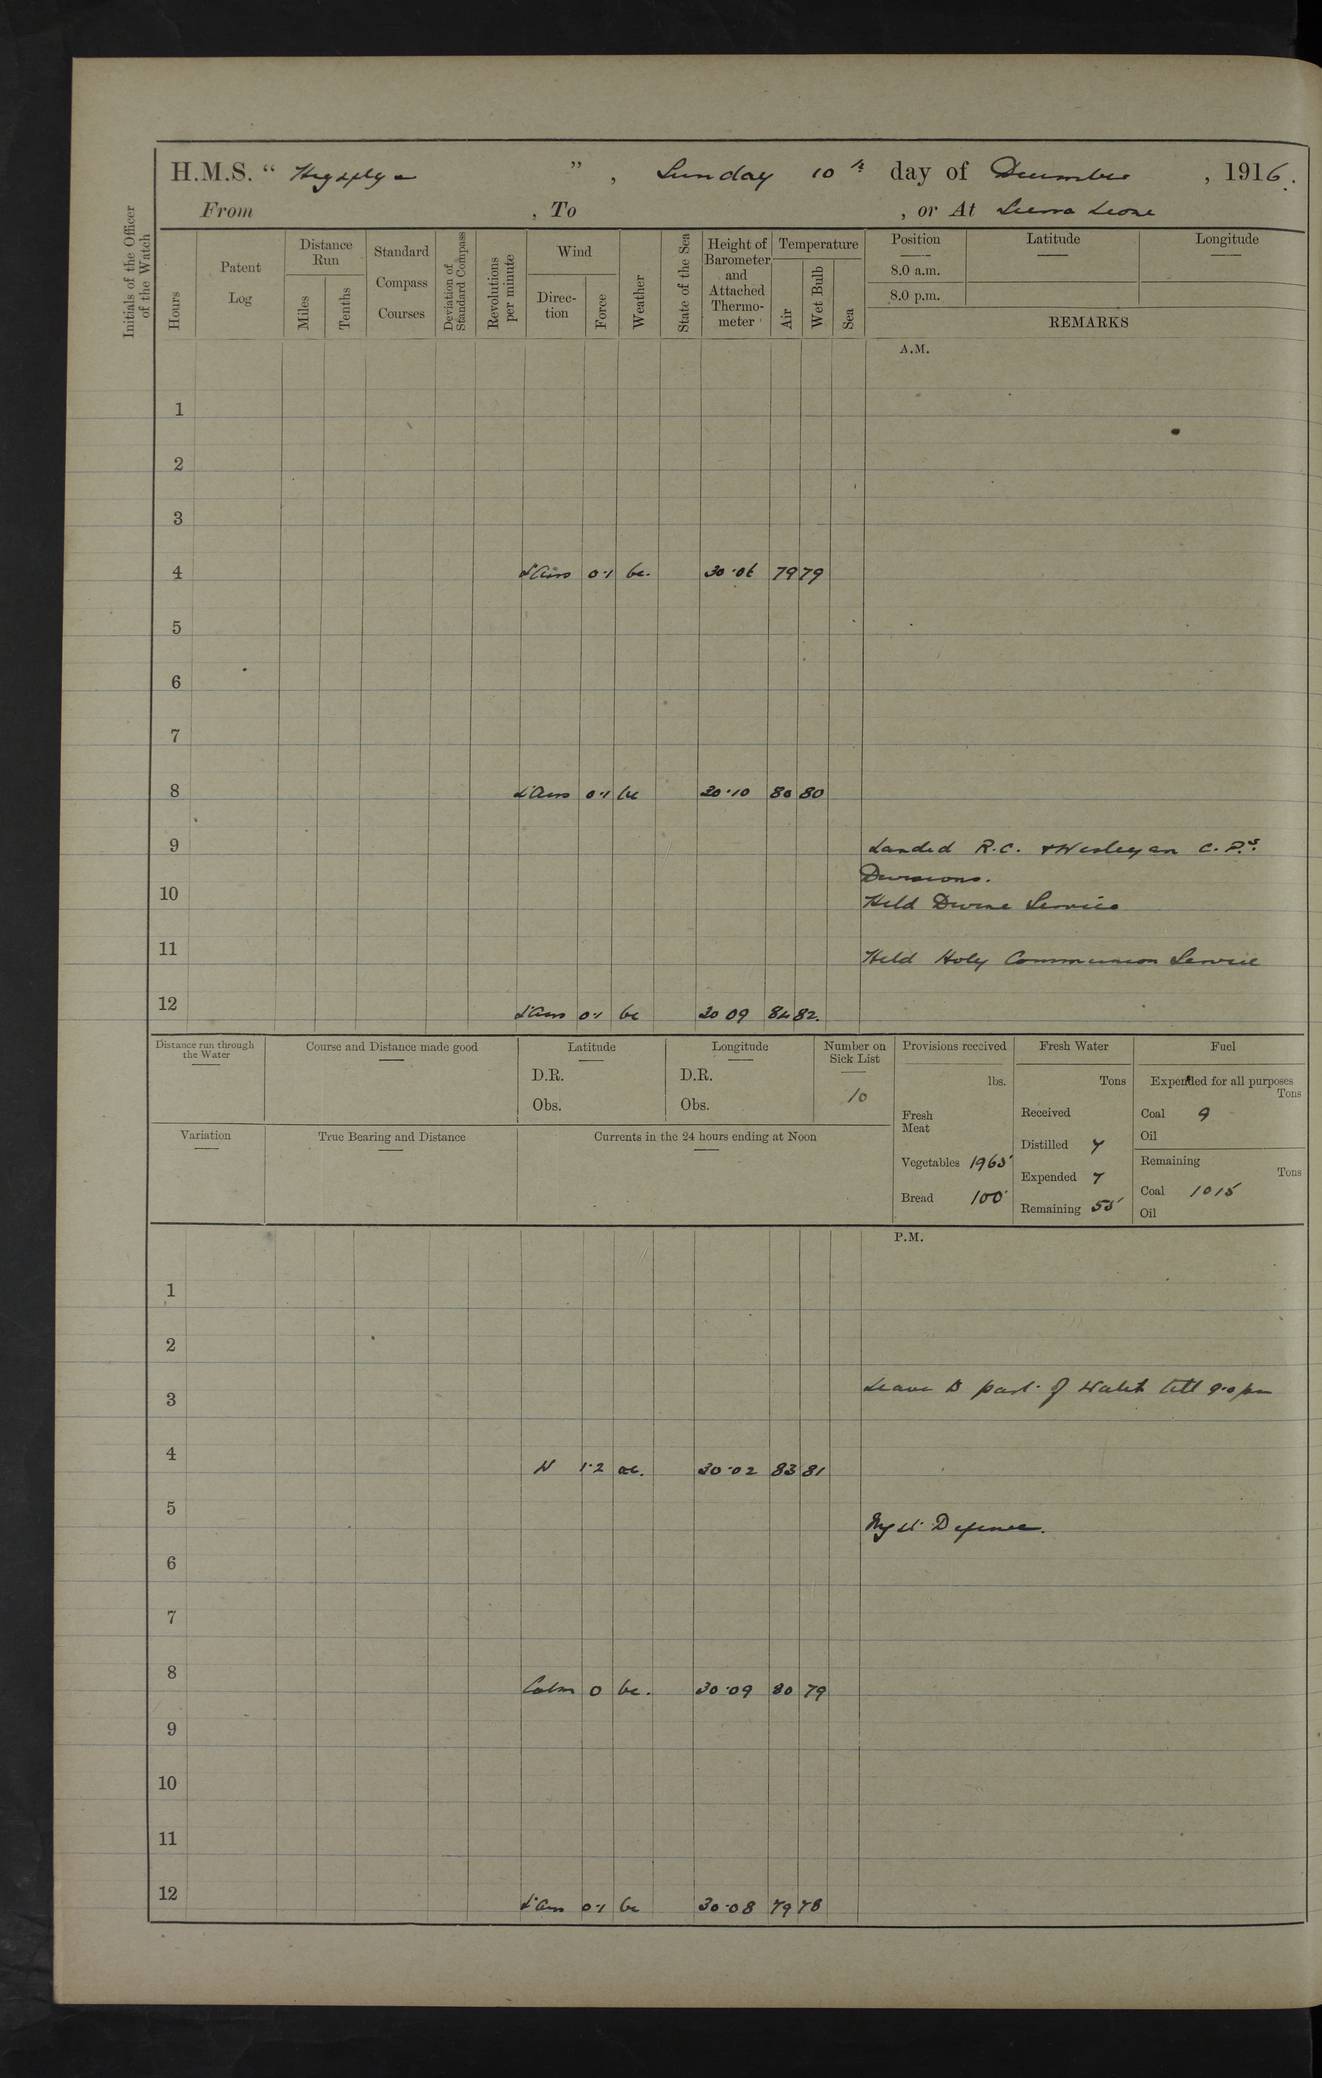 H.M.S. “ Highflyer ”, Sunday 10th day of December, 1916.
From , To , or At Sierra Leone
Initials of the Officer of the Watch
Hours
Patent Log
Distance Run
Miles
Tenths
Standard Compass Courses
Deviation of Standard Compass
Revolutions per minute
Wind
Direction
Force
Weather
State of the Sea
Height of Barometer and Attached Thermometer
Temperature
Air
Wet Bulb
Sea
Position
Latitude
Longitude
8.0 a.m.
8.0 p.m.
REMARKS
A.M.
1
2
3
4 L'Airs 0·1 bc. 30·06 79 79
5
6
7
8 L'Airs 0·1 bc 30·10 80 80
9 Landed R.C. & Wesleyan C. P.s.
Divisions.
10 Held Divine Service
11 Held Holy Communion Service
12 L'Airs 0·1 bc 30 09 84 82.
Distance run through the Water
Course and Distance made good
Latitude
D.R.
Obs.
Longitude
D.R.
Obs.
Number on Sick List
10
Provisions received
lbs.
Fresh Meat
Vegetables 1965
Bread 100
Fresh Water
Tons
Received
Distilled 7
Expended 7
Remaining 55
Fuel
Expended for all purposes
Tons
Coal 9
Oil
Remaining
Tons
Coal 1015
Oil
Variation
True Bearing and Distance
Currents in the 24 hours ending at Noon
P.M.
1
2
3 Leave to part of Watch till 9.0 pm
4 N 1·2 bc. 30·02 83 81
5 Night Defence.
6
7
8 Calm 0 bc. 30·09 80 79
9
10
11
12 L'Airs 0·1 bc 30·08 79 78